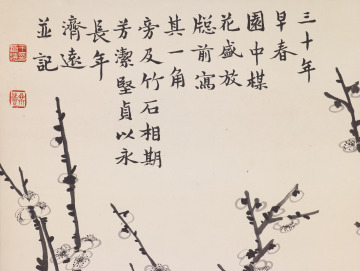 三十年
早春
園中楳
花盛放
牕前寫
其一角
旁及竹石相期
芳潔堅貞以永
長年
濟遠
並記